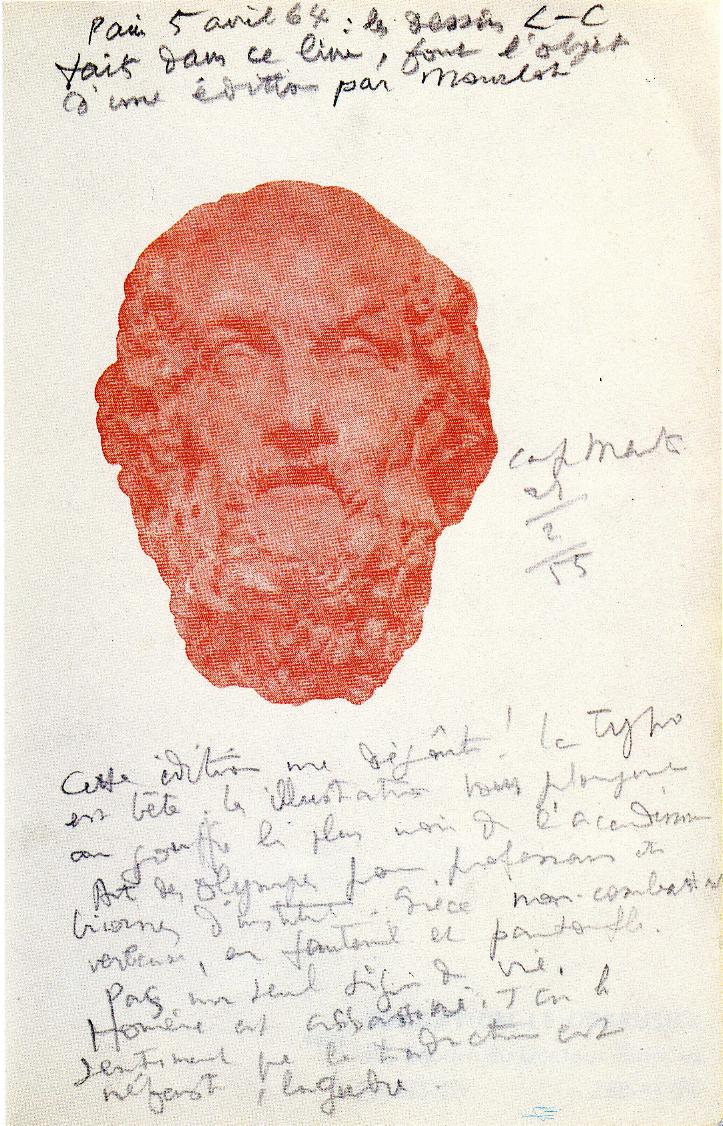 Paris 5 avril 64 : les dessins L-C
faits dans ce livre, font l'objet
d'une édition par Mourlot
Cap Martin
2
55
Cette édition me dégoûte ! La typo
est bête, les illustrations vous plongent
au gouffre le plus noir de l'académisme
Art des Olympes pour professeurs et
d'institut. Grèce non-combattante
verbeuse, en fauteuil et pantoufles.
Pas un seul signe de vie.
Homère est assassiné. J'ai le
sentiment que la traduction est
néfaste,